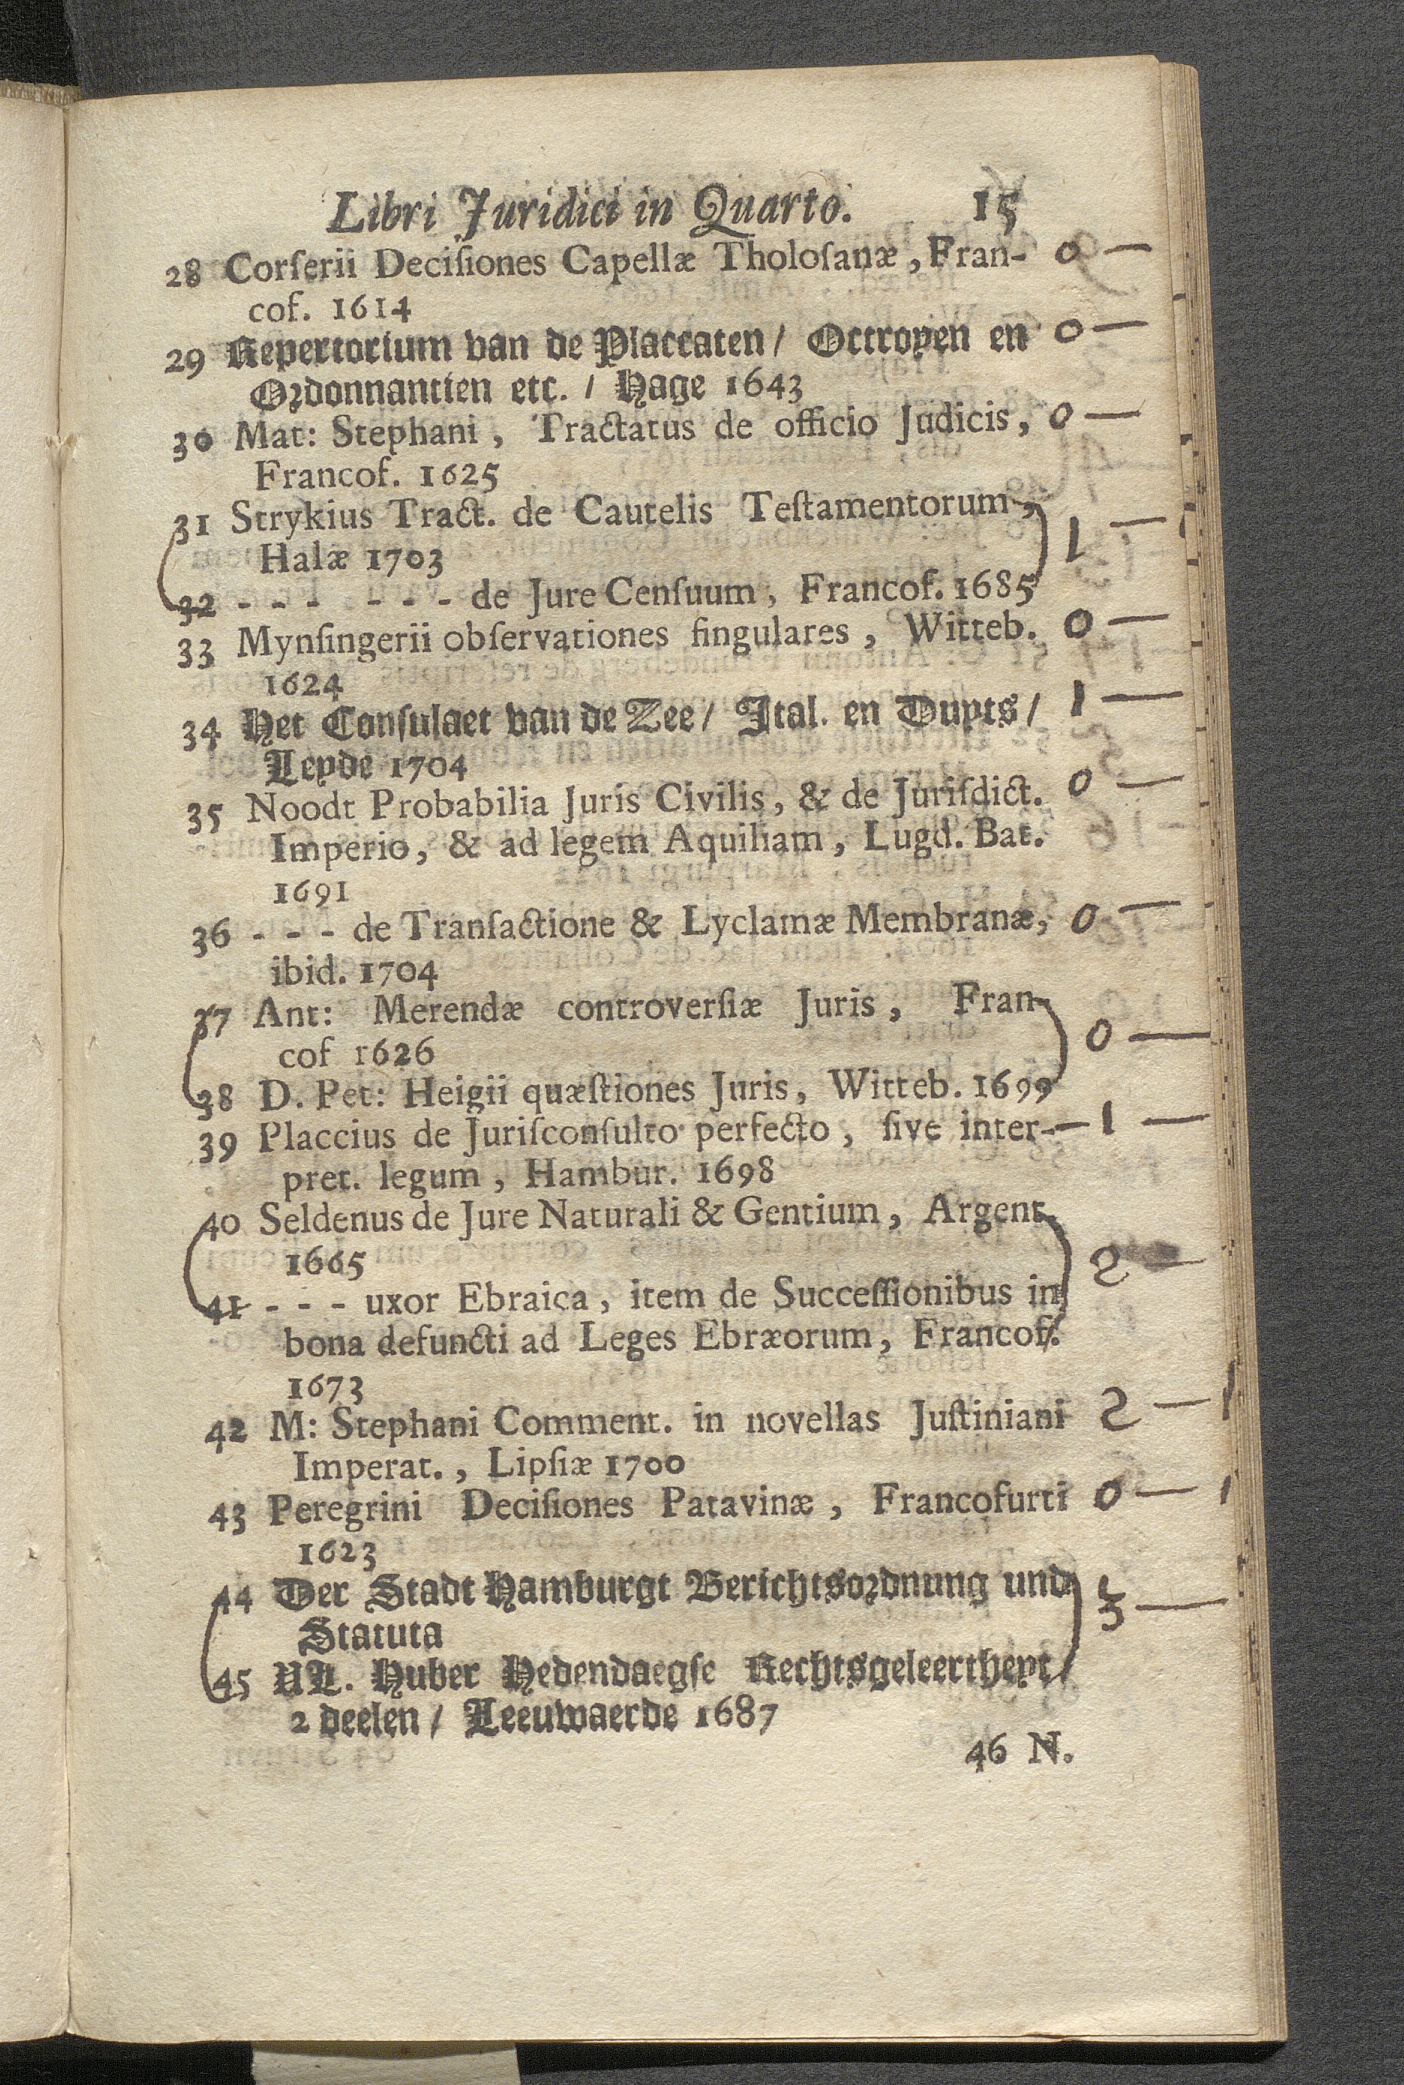 Libri Juridici in Quarto. 15
28 Corſerii Deciſiones Capellæ Tholoſanæ, Fran- 0 —
cof. 1614
29 Repertorium van de Placcaten / Octroyen en 0 —
Ordonnantien etc. / Hage 1643
30 Mat: Stephani, Tractatus de officio Judicis, 0 —
Francof. 1625
31 Strykius Tract. de Cautelis Teſtamentorum, 1 —
Halæ 1703
32 - - - - - - de Jure Cenſuum, Francof. 1685
33 Mynſingerii obſervationes ſingulares, Witteb. 0 —
1624
34 Het Conſulaet van de Zee / Ital. en Duyts / 1 —
Leyde 1704
35 Noodt Probabilia Juris Civilis, & de Juriſdict. 0 —
Imperio, & ad legem Aquiliam, Lugd. Bat.
1691
36 - - - de Tranſactione & Lyclamæ Membranæ, 0 —
ibid. 1704
37 Ant: Merendæ controverſiæ Juris, Fran-
cof 1626 0 —
38 D. Pet: Heigii quæſtiones Juris, Witteb. 1699
39 Placcius de Juriſconſulto perfecto, ſive inter- 1 —
pret. legum, Hambur. 1698
40 Seldenus de Jure Naturali & Gentium, Argent.
1665 2 —
41 - - - uxor Ebraica, item de Succeſſionibus in
bona defuncti ad Leges Ebræorum, Francof.
1673
42 M: Stephani Comment. in novellas Juſtiniani 2 — 1
Imperat., Lipſiæ 1700
43 Peregrini Deciſiones Patavinæ, Francofurti 0 — 1
1623
44 Der Stadt Hamburgt Berichtsordnung und
Statuta
45 Ul. Huber Hedendaegſe Rechtsgeleertheyt /
2 deelen / Leeuwaerde 1687
46 N.